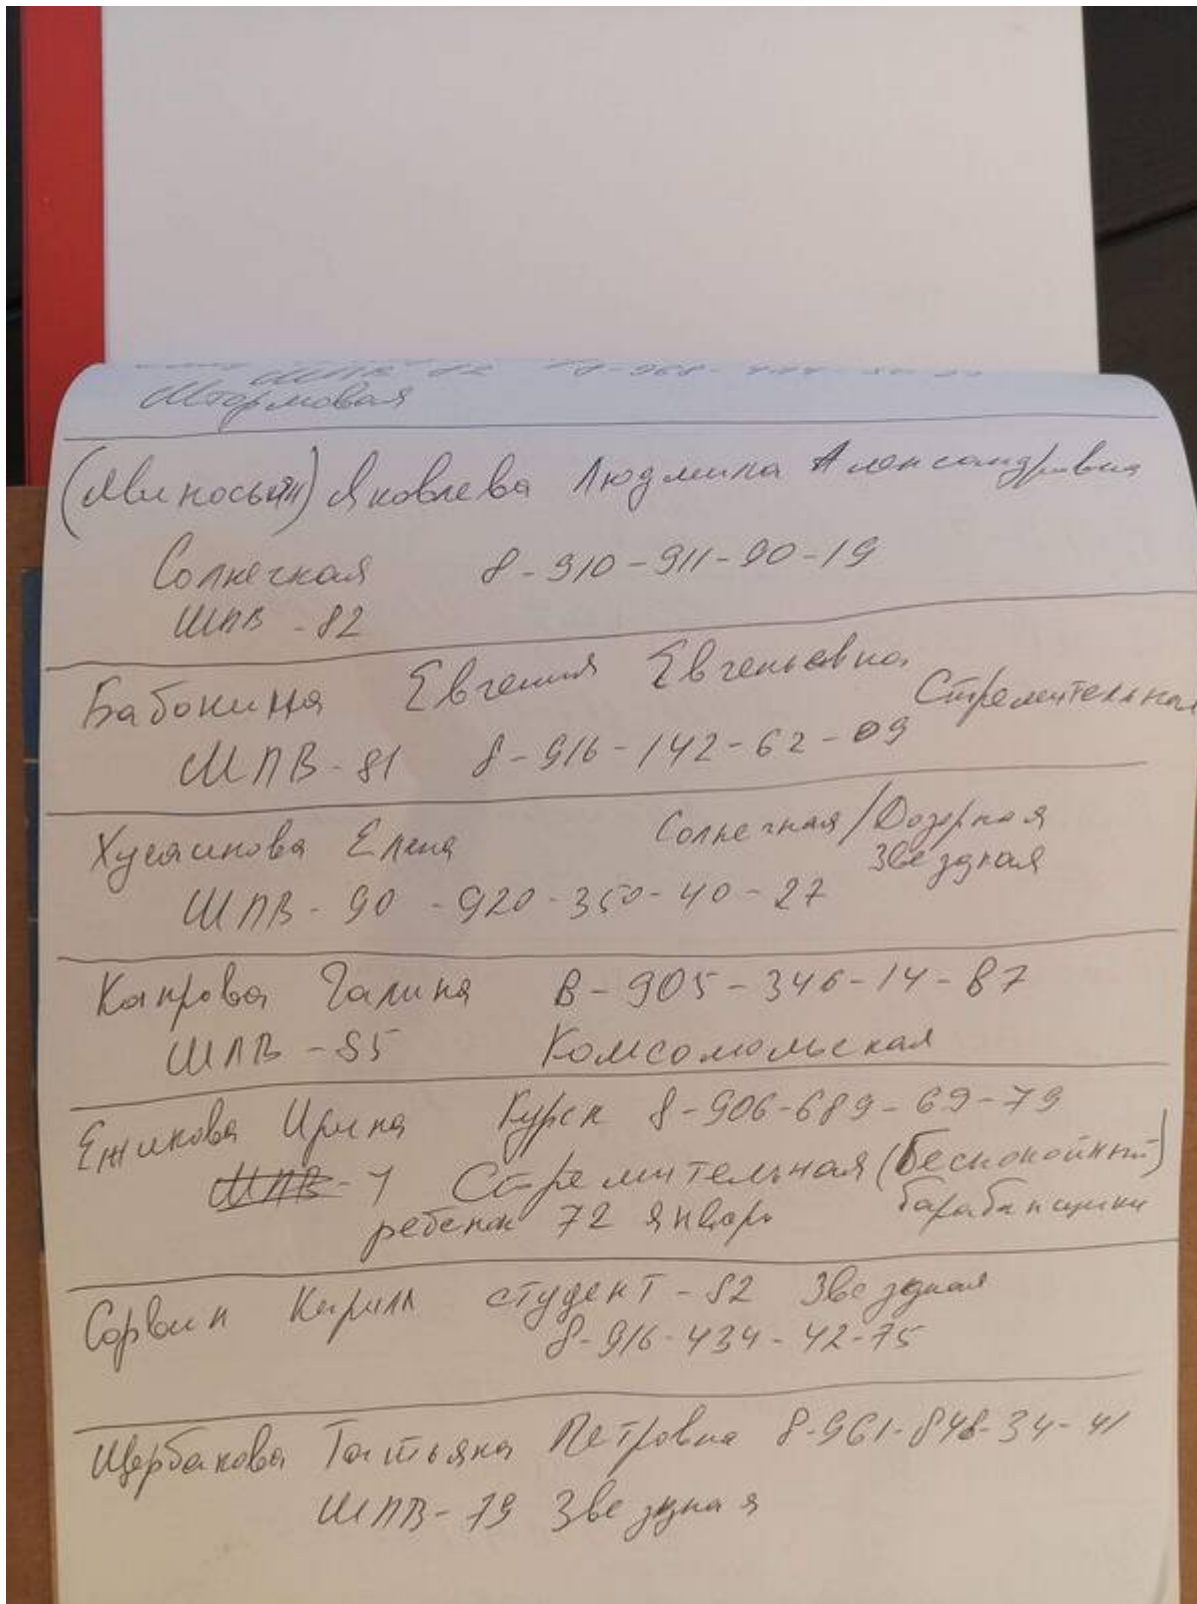 ШПВ 82 8-968-
Штормовая
(Миносьян) Яковлева Людмила Александровна
Солнечная 8-910-911-90-19
ШПВ - 82
Бабокина Евгения Евгеньевна Стремительная
ШПВ - 81 8-916-142-62-09
Хусаинова Елена Солнечная/Дозорная
Звездная
ШПВ - 90 - 920-350-40-27
Капрова Галина 8-905-346-14-87
ШПВ - 85 Комсомольская
Ежикова Ирина Курск 8-906-689-69-79
ШПВ - 1 Стремительная (Беспокойный)
ребенок 72 январь барабанщики
Сорвин Кирилл студент - 82 Звездная
8-916-434-42-75
Щербакова Татьяна Петровна 8-961-848-34-41
ШПВ - 79 Звездная